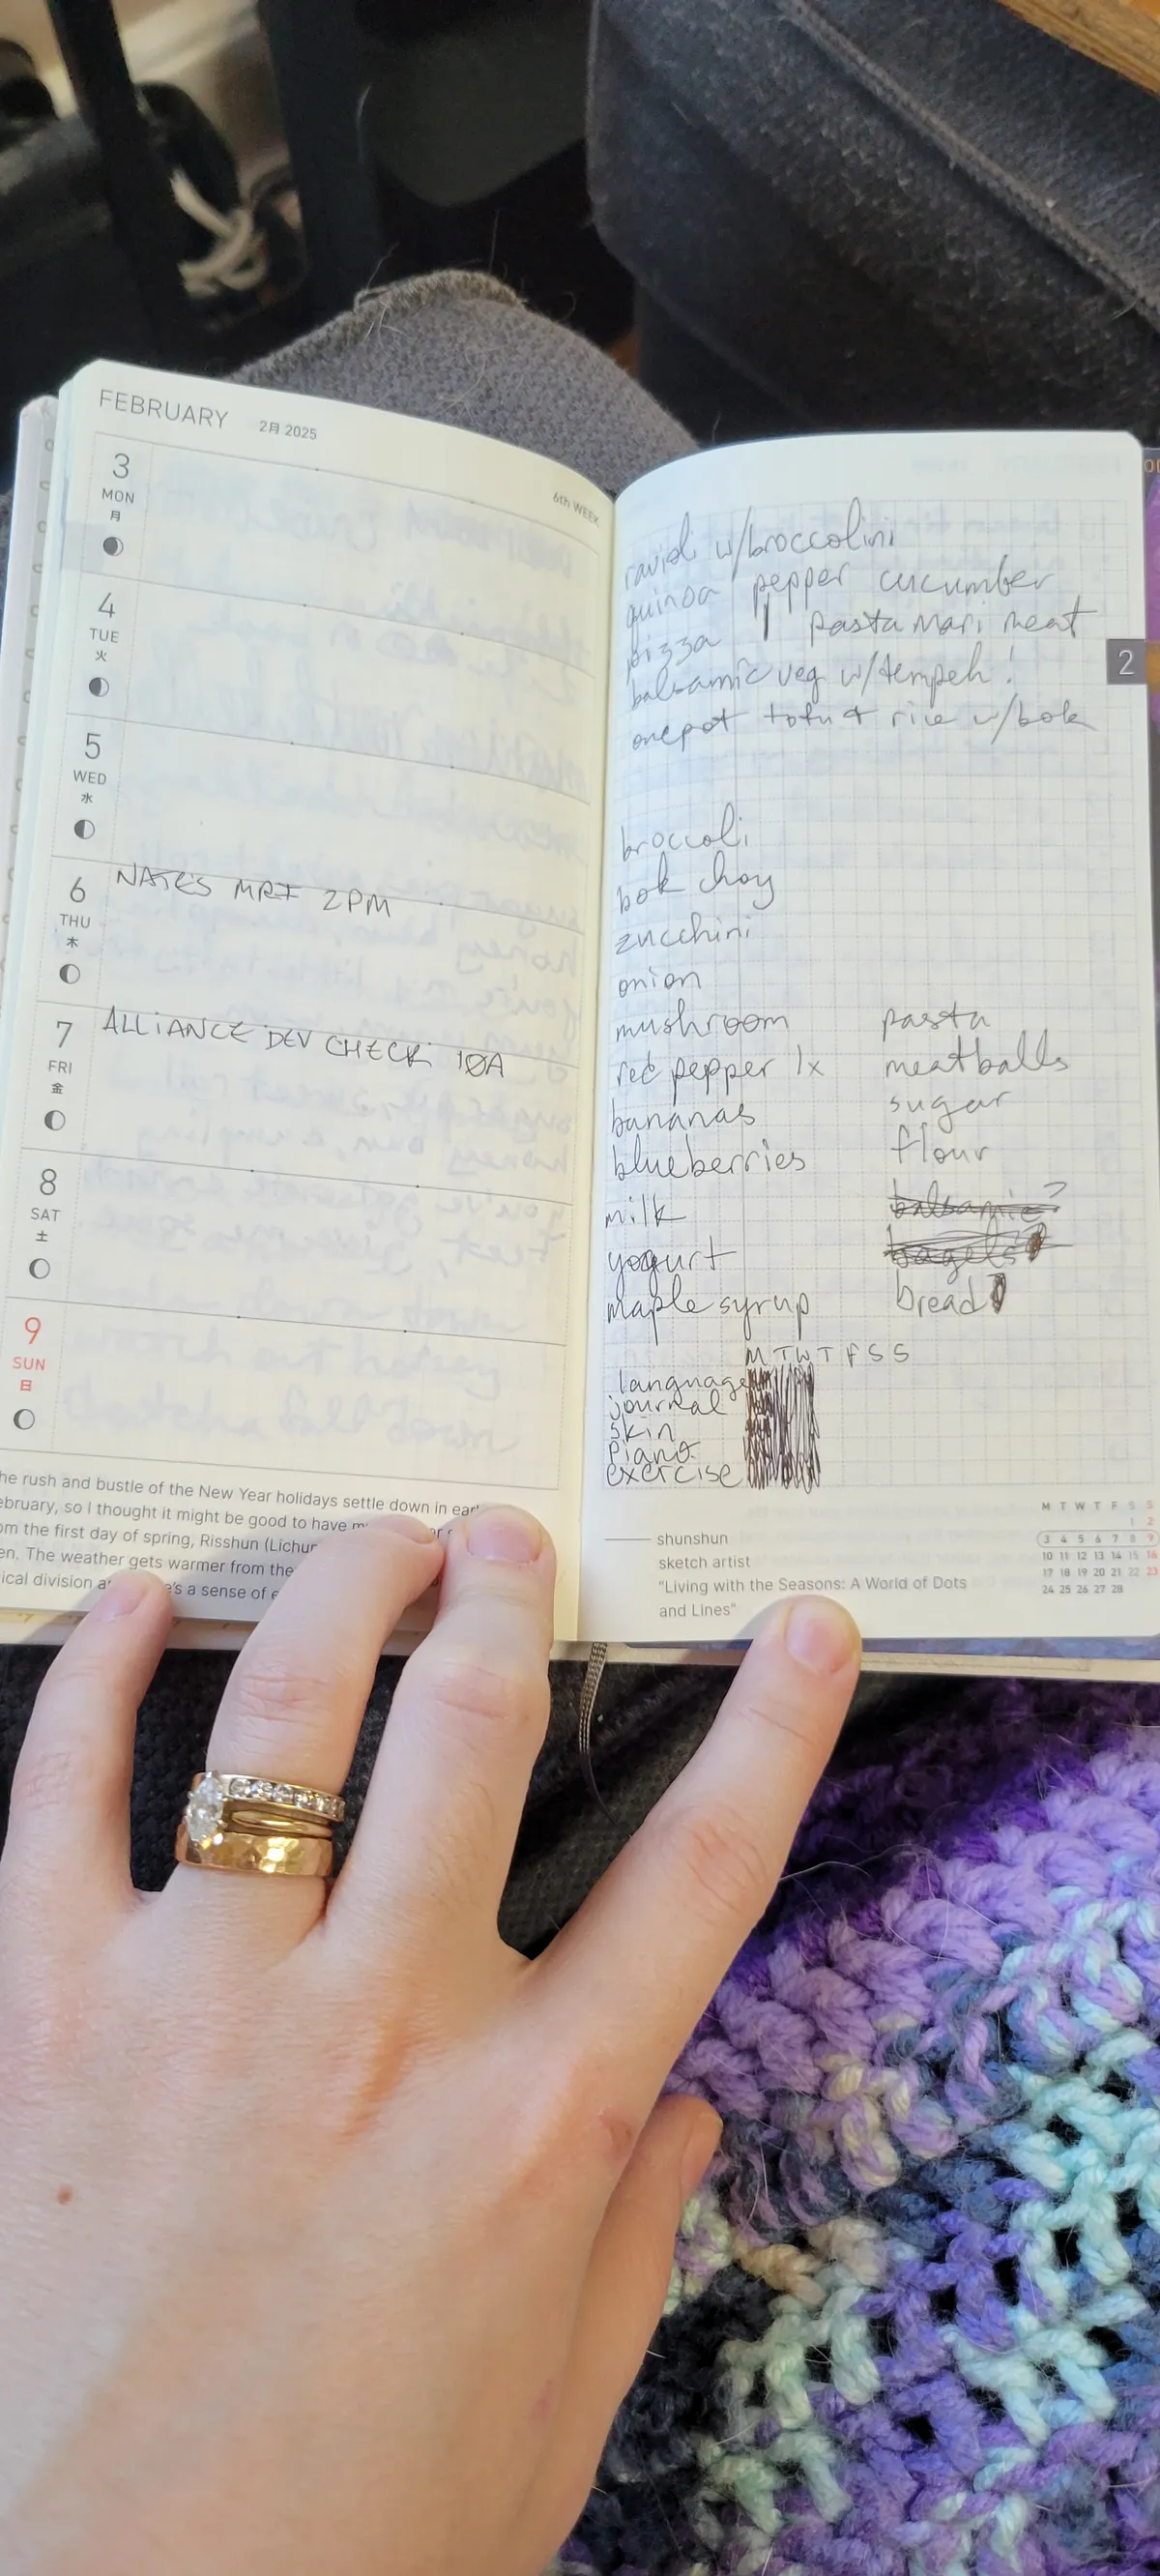 FEBRUARY 2月 2025
6th WEEK
3
MON
月
4
TUE
火
5
WED
水
6
THU
木
NATES MRI 2PM
7
FRI
金
ALLIANCE DEV CHECK 10A
8
SAT
土
9
SUN
日
he rush and bustle of the New Year holidays settle down in
ebruary, so I thought it might be good to have
om the first day of spring, Risshun
en. The weather gets warmer from the
ical division
's a sense of
ravioli w/broccolini
quinoa pepper cucumber
pizza | pasta mari meat
balsamic veg w/tempeh!
onepot tofu + rice w/bok
2
broccoli
bok choy
zucchini
onion
mushroom
red pepper 1x
bananas
blueberries
milk
yogurt
maple syrup
pasta
meatballs
sugar
flour
balsamic?
bagels
bread
M T W T F S S
language
journal
skin
piano
exercise
shunshun
sketch artist
"Living with the Seasons: A World of Dots
and Lines"
M T W T F S S
1 2
3 4 5 6 7 8 9
10 11 12 13 14 15 16
17 18 19 20 21 22 23
24 25 26 27 28